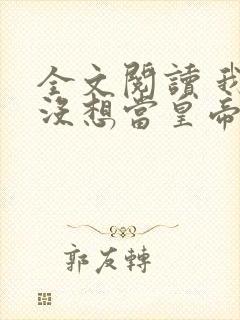 全文閱讀 我
沒想當皇帝
郭友轉